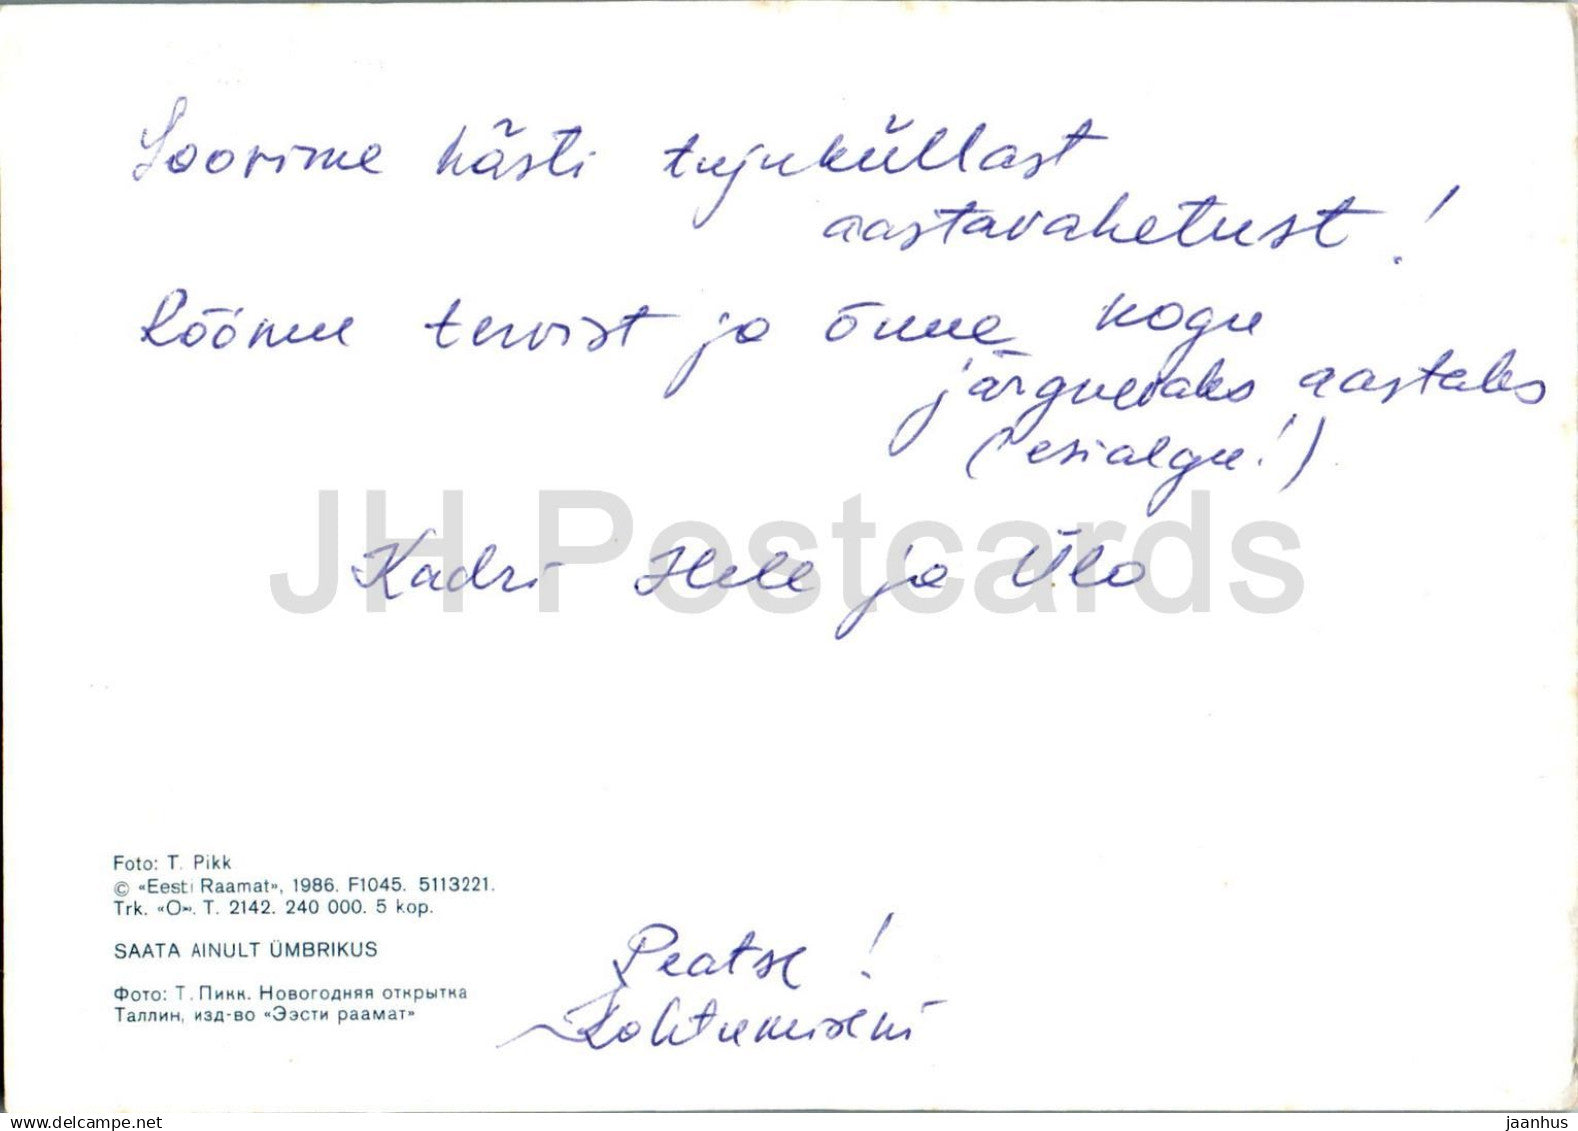 Soovime hästi tujuküllast
aastavahetust!
Rõõmu tervist ja õnne kogu
järgnevaks aastaks
(esialgu!)
Kadri Hele ja Ülo
JH Postcards
Foto: T. Pikk
© «Eesti Raamat», 1986. F1045. 5113221.
Trk. «O». T. 2142. 240 000. 5 kop.
SAATA AINULT ÜMBRIKUS
Фото: Т. Пикк. Новогодняя открытка
Таллин, изд-во «Ээсти раамат»
Peatse!
Kohtumiseni
delcampe.net
jaanhus